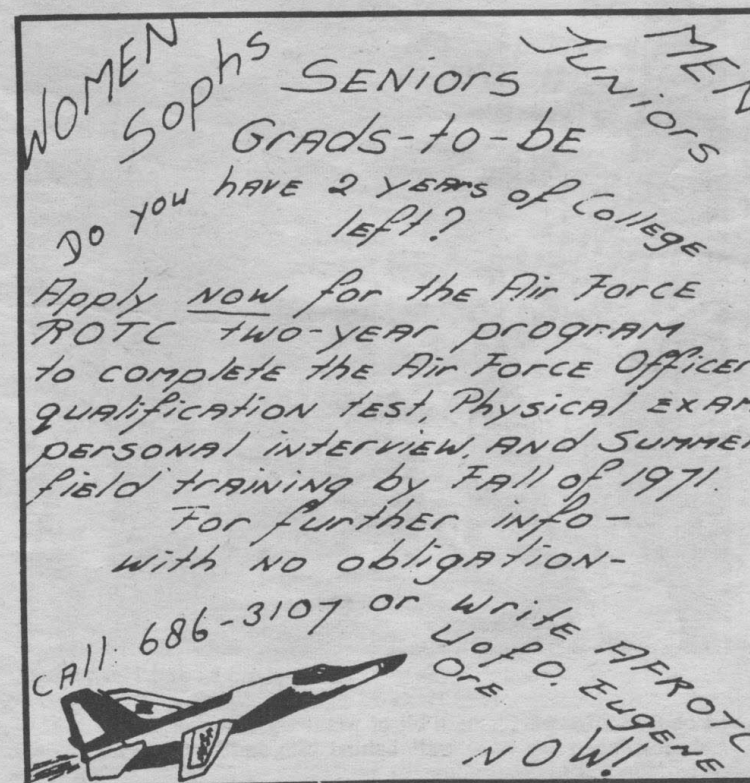 WOMEN
Sophs
SENiors
Juniors
MEN
GrADs-to-bE
Do you hAVE 2 yEARs of CollEgE
lEft?
Apply NOW for the Air ForcE
ROTC two-yEAr progrAM
to complEtE the Air ForcE OfficEr
quAlificAtion tEst, PhysicAl EXAM
pErsonAl intErviEw, AND SuMMEr
fiEld trAining by FAll of 1971.
For furthEr info-
with NO obligAtion-
CAll 686-3107 or writE AFROTC
U of O, EugENE
OrE
NOW!